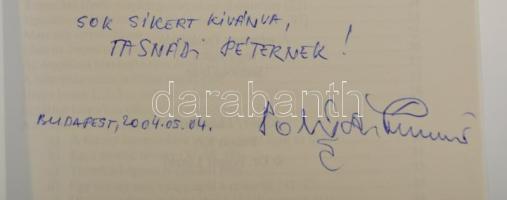 SOK SIKERT KIVÁNVA,
TASNÁDI PÉTERNEK!
BUDAPEST, 2004.05.04.
darabanth